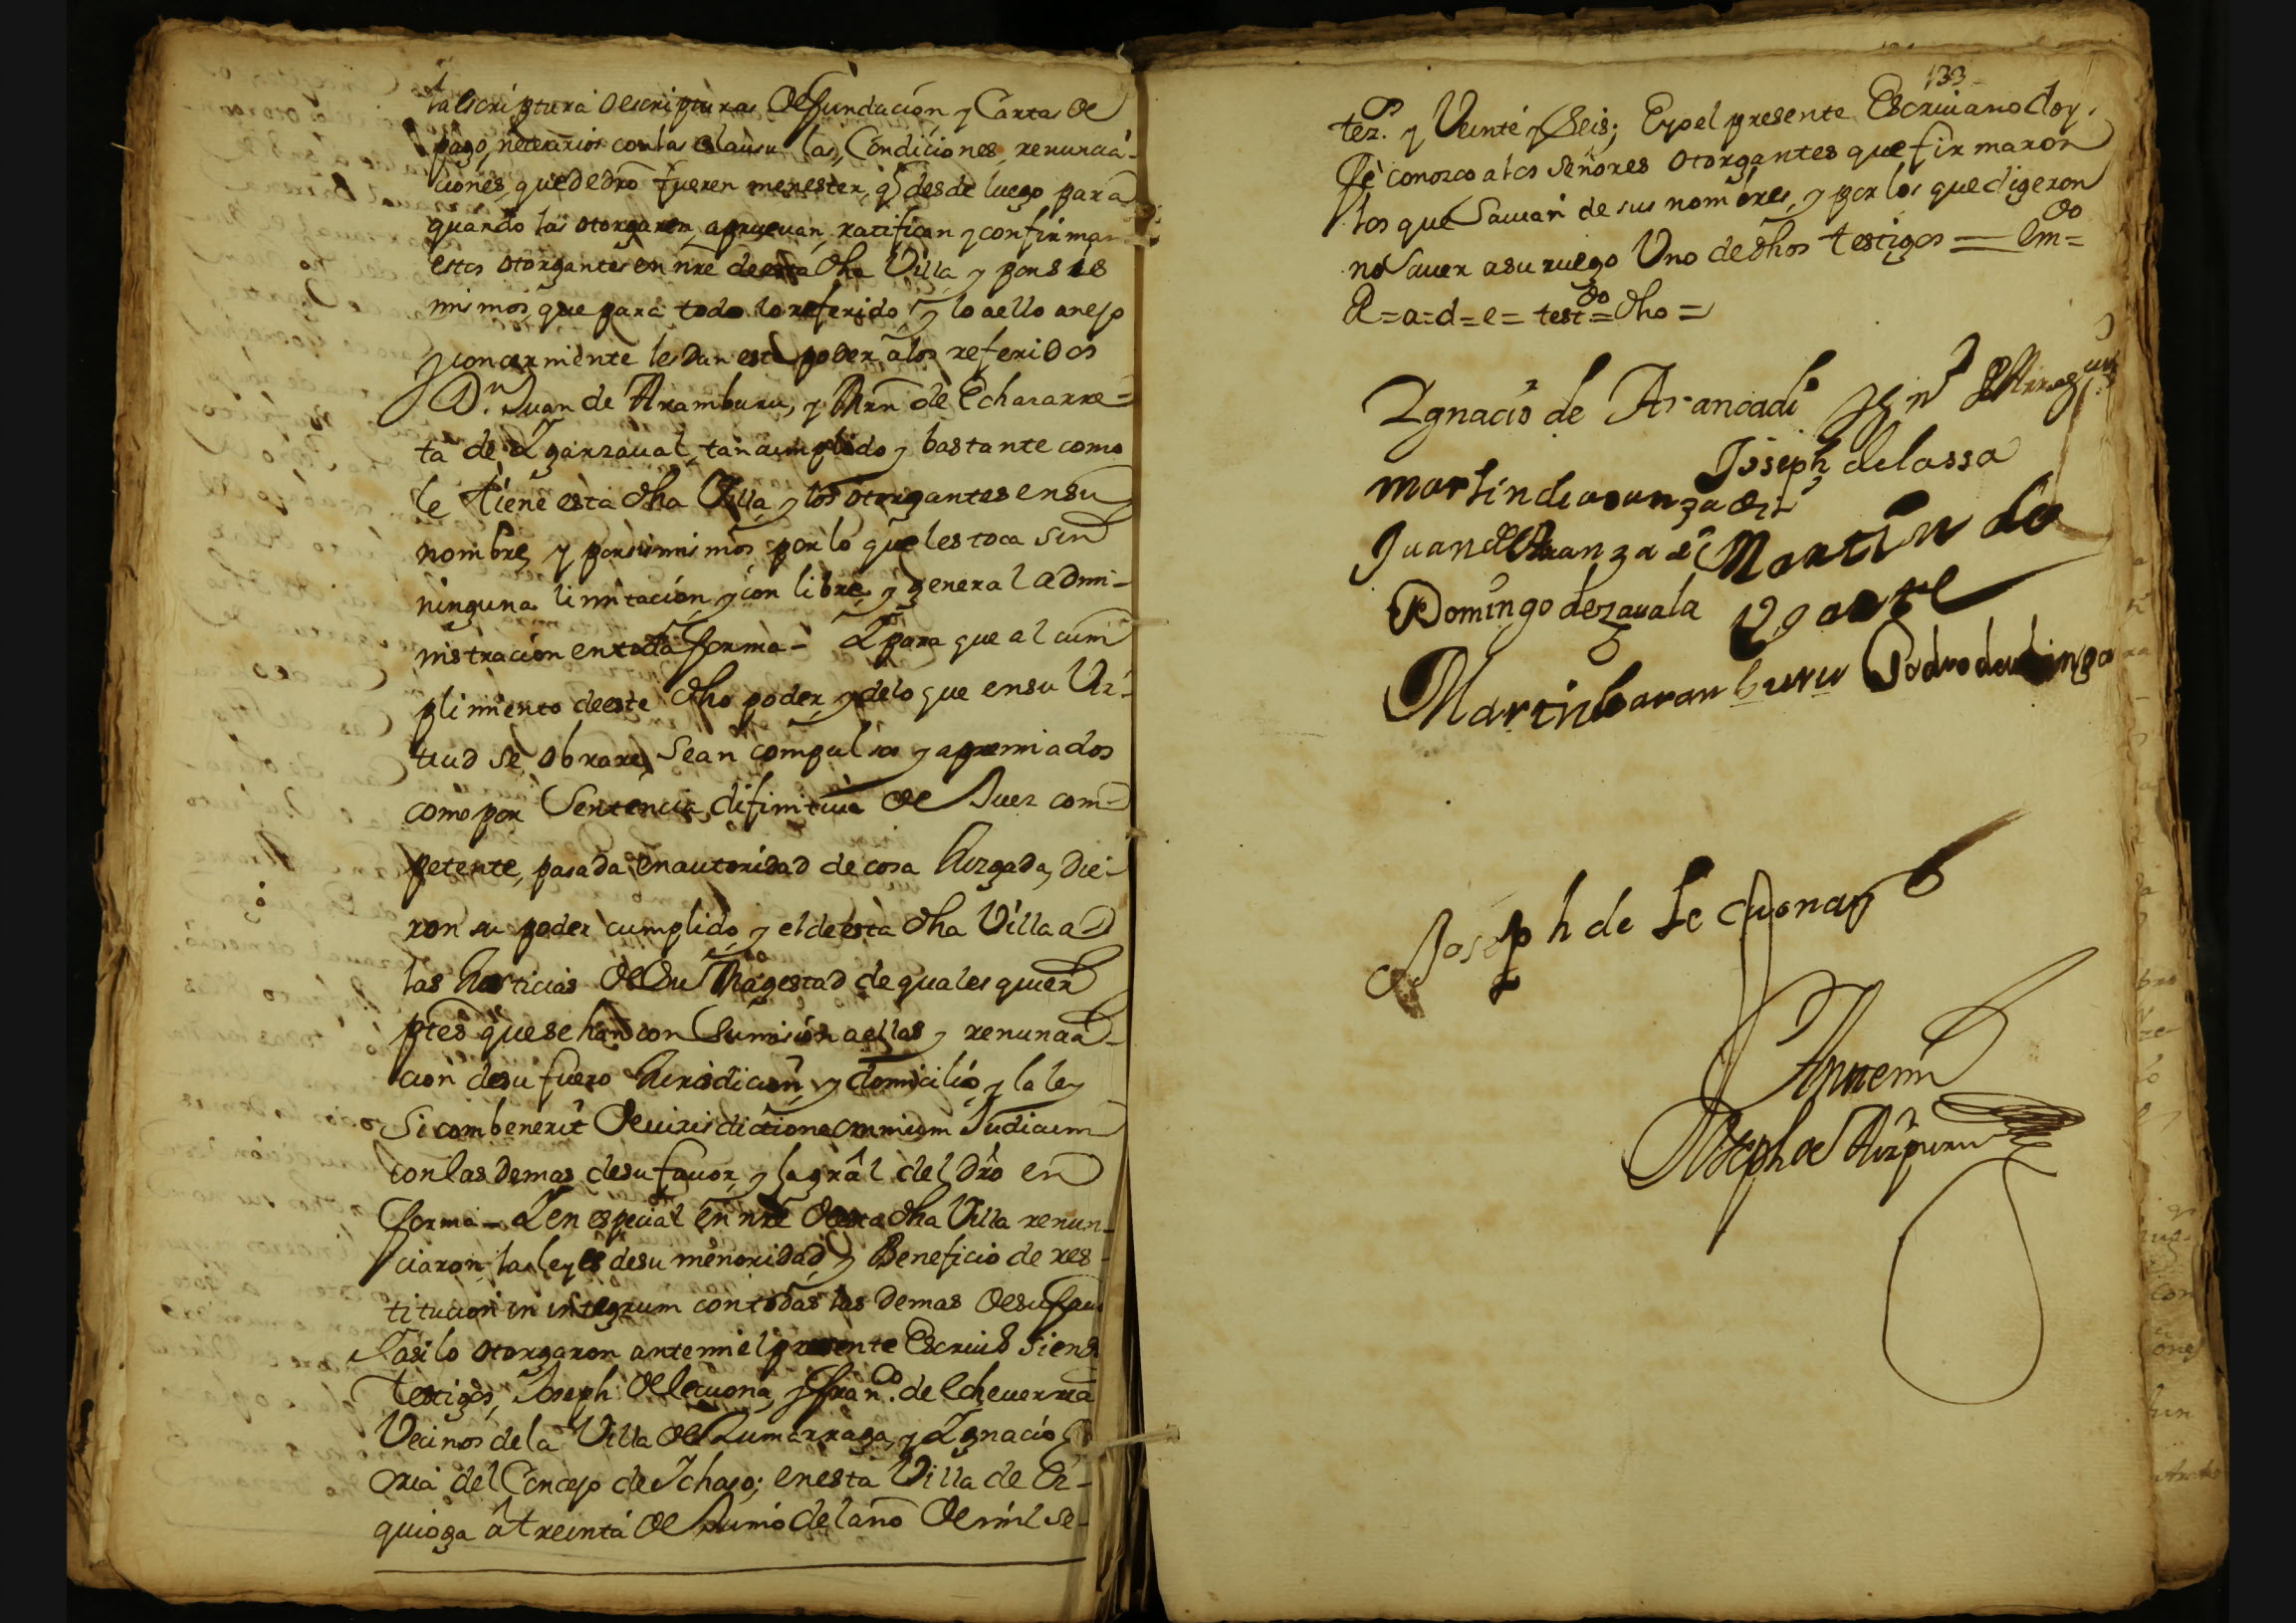 la escriptura o escripturas de fundación y Carta de
pago, necesarios con las clausulas, Condiciones, renuncia-
ciones, que de dro fueren menester, q desde luego para
quando las otorgaren, apruevan, ratifican y confirman
estos otorgantes en nre de esta dha Villa y por si
mismos, que para todo lo referido, y lo a ello anejo
y concerniente les dan este poder a los referidos
Dn. Juan de Aramburu, y Mrn de Echasarre=
ta de Ygarzaval, tan cumplido y bastante como
le tiene esta dha Villa, y los otorgantes en su
nombre, y por si mismos, por lo que les toca sin
ninguna limitación, y con libre, y general admi-
nistración en toda forma- Y para que al cum
plimiento de este dho poder, y de lo que en su vir-
tud se obrare, sean compulsos y apremiados
como por Sentencia difinitiva de Juez com-
petente, pasada en autoridad de cosa Juzgada, die-
ron su poder cumplido, y el de esta dha Villa a
las Justicias de Su Magestad de quales quier
ptes que sehan con Sumisión a ellas y renuncia-
ción de su fuero Jurisdición, y domicilio, y la ley
Si combenerit de iurisdictione omnium Judicum
con las demas de su favor, y la gral del dro en
forma - Y en especial en nre de esta dha Villa renun-
ciaron las leyes de su menoridad, y Beneficio de res-
titución in integrum con todas las demas de su favr
Y asi lo otorgaron ante mi el presente Escriuo siendo
testigos, Joseph de Lecuona, y Franco. de Echeverria
Vecinos de la Villa de Zumarraga, y Ygnacio
oria del Concejo de Ichaso; en esta Villa de Ez-
quioga â treinta de Junio del año de mil se-
133
tezos. y Veinte y Seis; E yo el presente Escriuano doy
Fè conozco a los señores otorgantes que firmaron
los que Sauian de sus nombres, y por los que digeron
no Sauer a su ruego Uno de dhos testigos = Emdo=
R=a=d=e= testdo= dho=
Ygnacio de Arancadi
Joseph de lassa
martin de aranza
Juan de Aranza
Martin de
Domingo de zavala
Vgarte
Martin de aramburu
Joseph de Lecuona
Ante mi
Joseph de Aizpuru